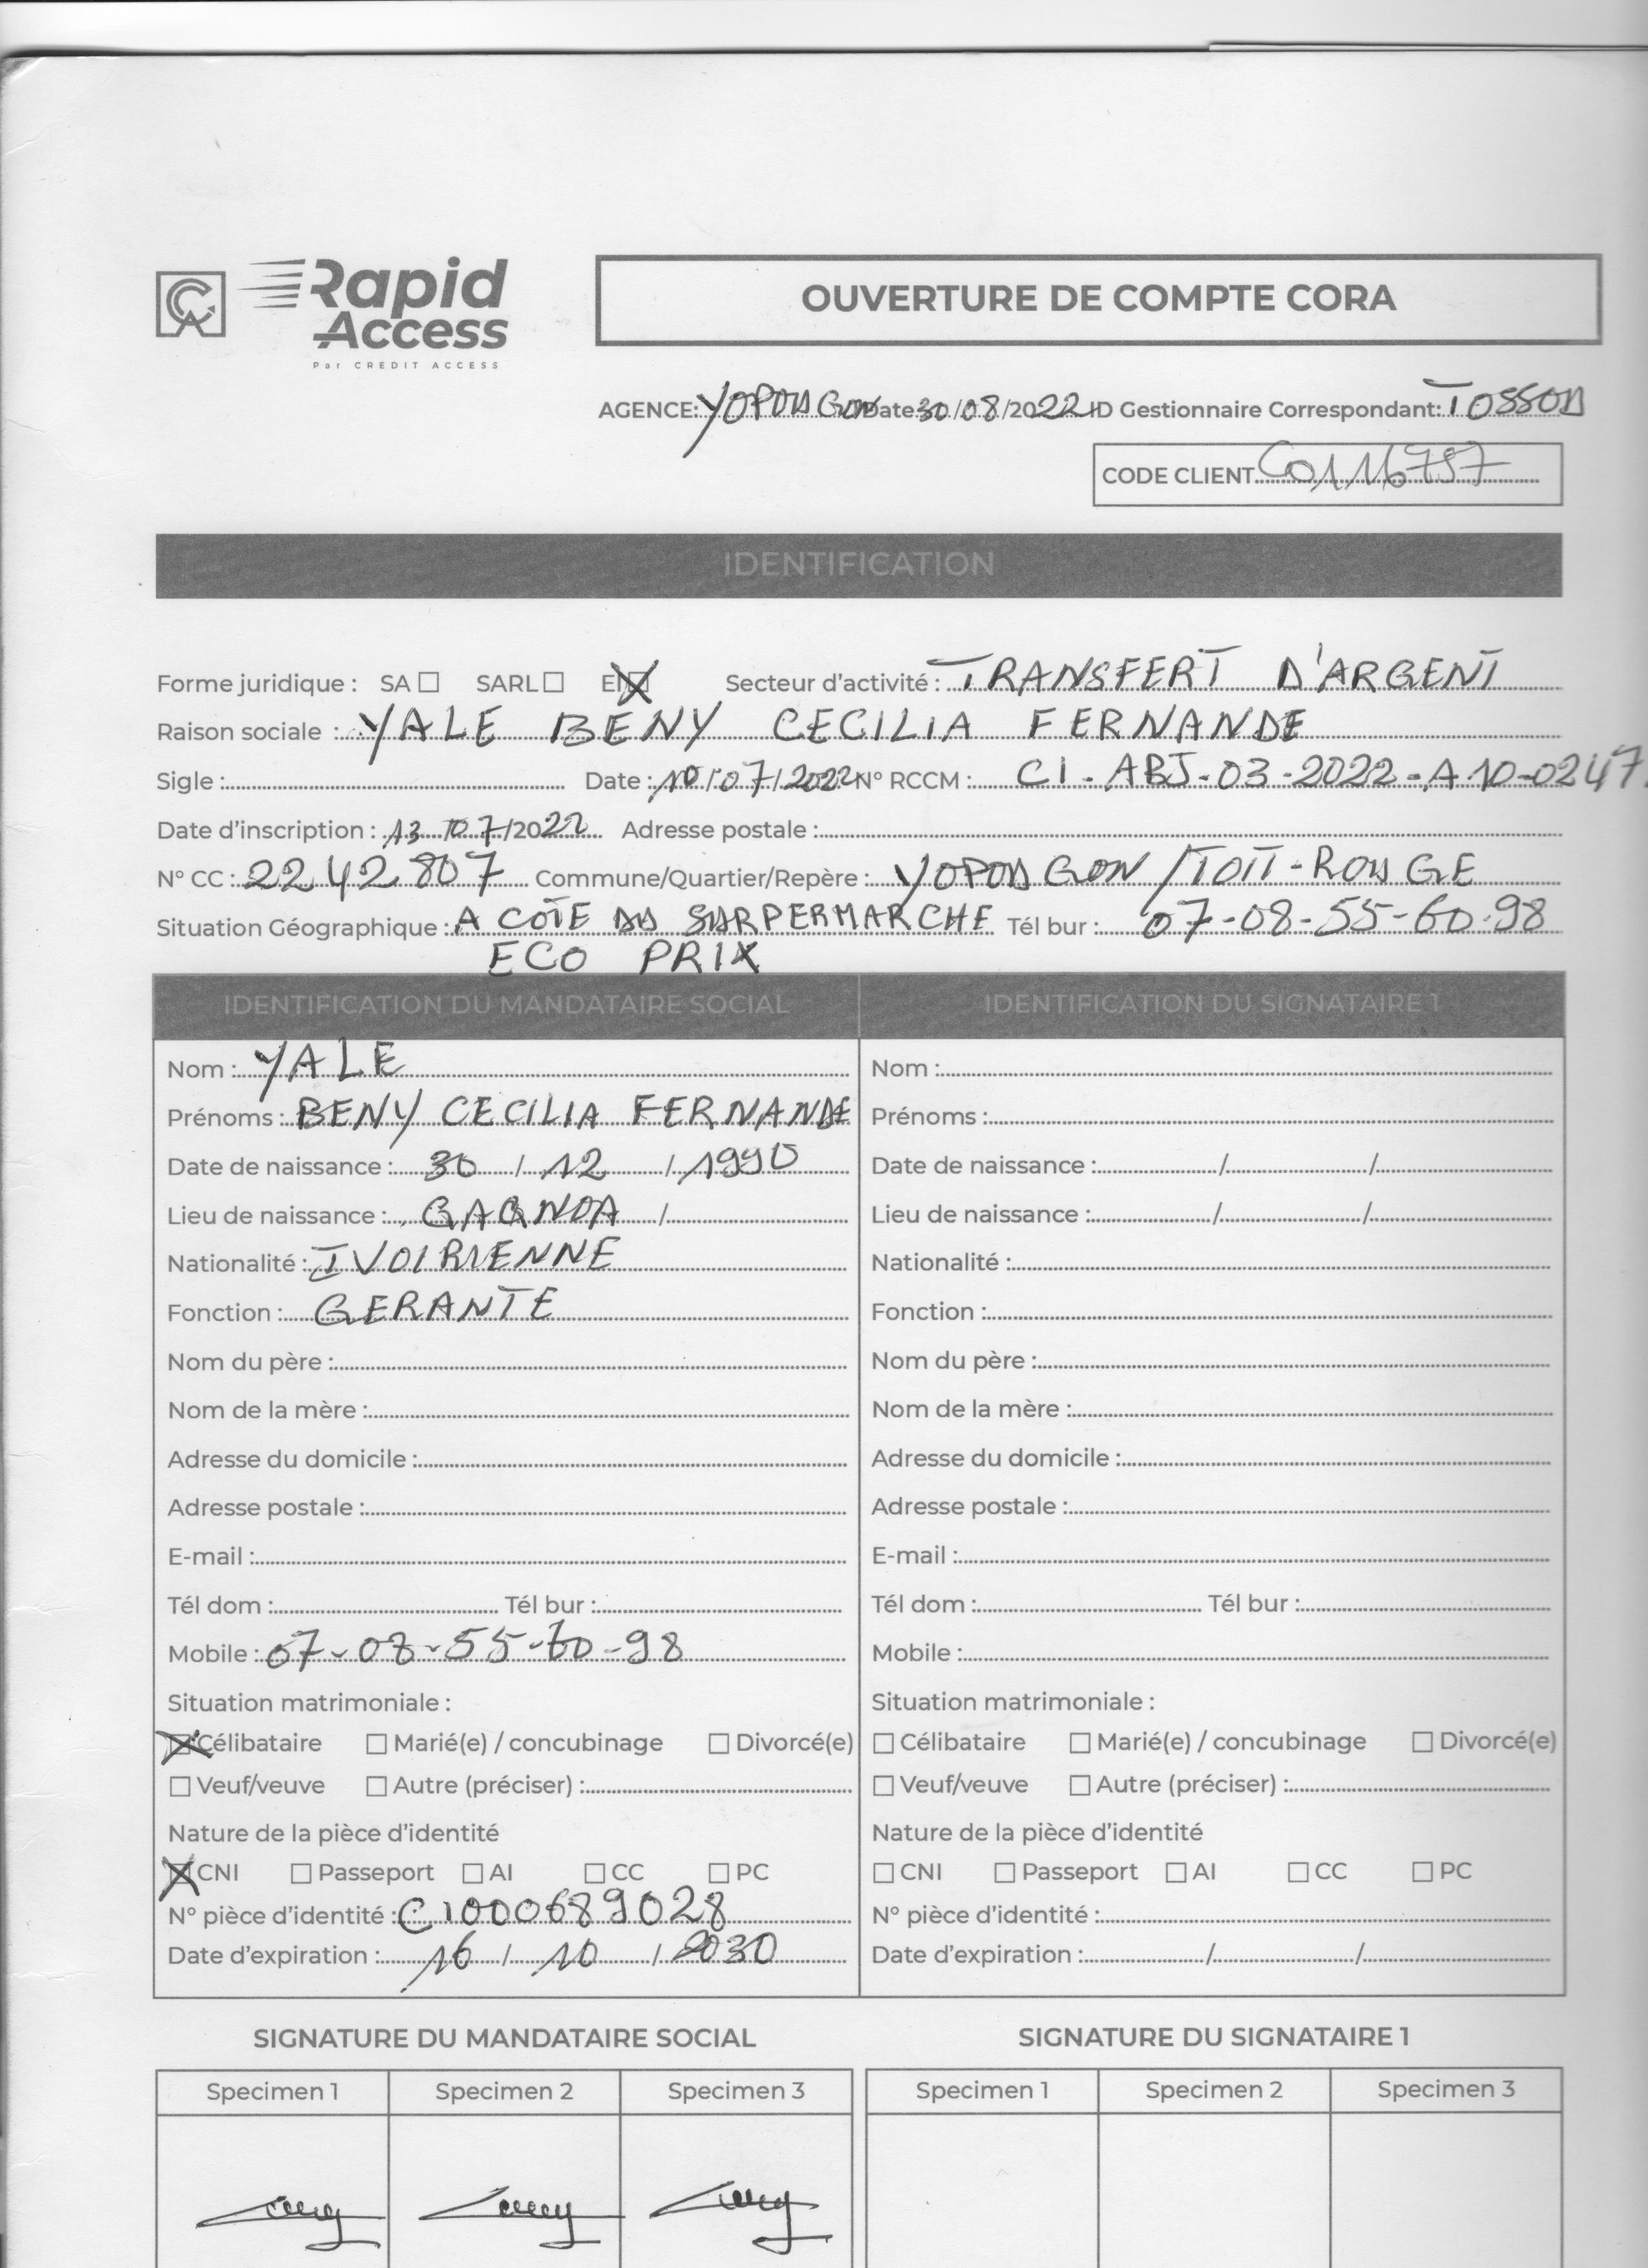 CA Rapid Access
Par CREDIT ACCESS
OUVERTURE DE COMPTE CORA
AGENCE: YOPOUGON Date 30/08/2022 ID Gestionnaire Correspondant: TOSSOU
CODE CLIENT C0116757
IDENTIFICATION
Forme juridique : SA ☐ SARL ☐ EI ☒ Secteur d'activité : TRANSFERT D'ARGENT
Raison sociale : YALE BENY CECILIA FERNANDE
Sigle : Date : 10/07/2022 N° RCCM : CI-ABJ-03-2022-A10-0247
Date d'inscription : 13/07/2022 Adresse postale :
N° CC : 2242807 Commune/Quartier/Repère : YOPOUGON/TOIT-ROUGE
Situation Géographique : A COTE DU SURPERMARCHE Tél bur : 07-08-55-60-98
ECO PRIX
IDENTIFICATION DU MANDATAIRE SOCIAL IDENTIFICATION DU SIGNATAIRE 1
Nom : YALE Nom :
Prénoms : BENY CECILIA FERNANDE Prénoms :
Date de naissance : 30 / 12 / 1990 Date de naissance : / /
Lieu de naissance : GAGNOA / Lieu de naissance : / /
Nationalité : IVOIRIENNE Nationalité :
Fonction : GERANTE Fonction :
Nom du père : Nom du père :
Nom de la mère : Nom de la mère :
Adresse du domicile : Adresse du domicile :
Adresse postale : Adresse postale :
E-mail : E-mail :
Tél dom : Tél bur : Tél dom : Tél bur :
Mobile : 07-08-55-60-98 Mobile :
Situation matrimoniale : Situation matrimoniale :
☒ Célibataire ☐ Marié(e) / concubinage ☐ Divorcé(e) ☐ Célibataire ☐ Marié(e) / concubinage ☐ Divorcé(e)
☐ Veuf/veuve ☐ Autre (préciser) : ☐ Veuf/veuve ☐ Autre (préciser) :
Nature de la pièce d'identité Nature de la pièce d'identité
☒ CNI ☐ Passeport ☐ AI ☐ CC ☐ PC ☐ CNI ☐ Passeport ☐ AI ☐ CC ☐ PC
N° pièce d'identité : CI000689028 N° pièce d'identité :
Date d'expiration : 16 / 10 / 2030 Date d'expiration : / /
SIGNATURE DU MANDATAIRE SOCIAL SIGNATURE DU SIGNATAIRE 1
Specimen 1 Specimen 2 Specimen 3 Specimen 1 Specimen 2 Specimen 3